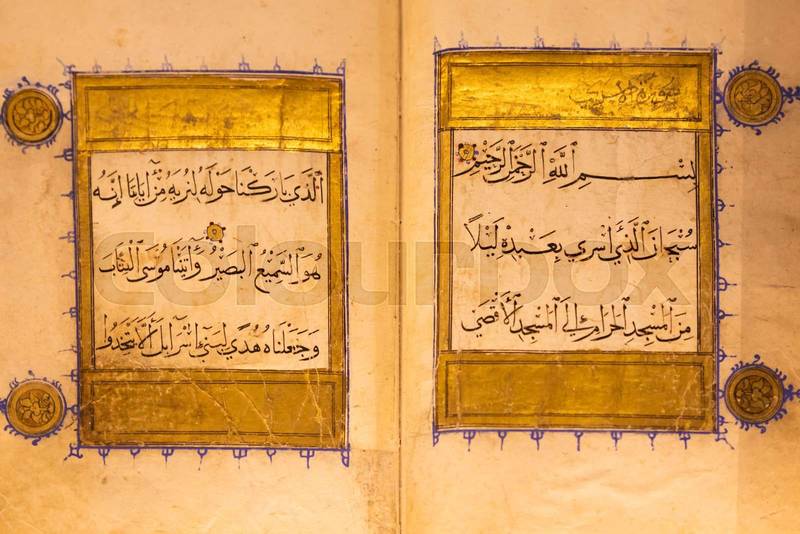 بِسْمِ اللَّهِ الرَّحْمَنِ الرَّحِيمِ
سُبْحَانَ الَّذِي أَسْرَى بِعَبْدِهِ لَيْلًا
مِنَ الْمَسْجِدِ الْحَرَامِ إِلَى الْمَسْجِدِ الْأَقْصَى
الَّذِي بَارَكْنَا حَوْلَهُ لِنُرِيَهُ مِنْ آيَاتِنَا إِنَّهُ
هُوَ السَّمِيعُ الْبَصِيرُ وَآتَيْنَا مُوسَى الْكِتَابَ
وَجَعَلْنَاهُ هُدًى لِبَنِي إِسْرَائِيلَ أَلَّا تَتَّخِذُوا
colourbox